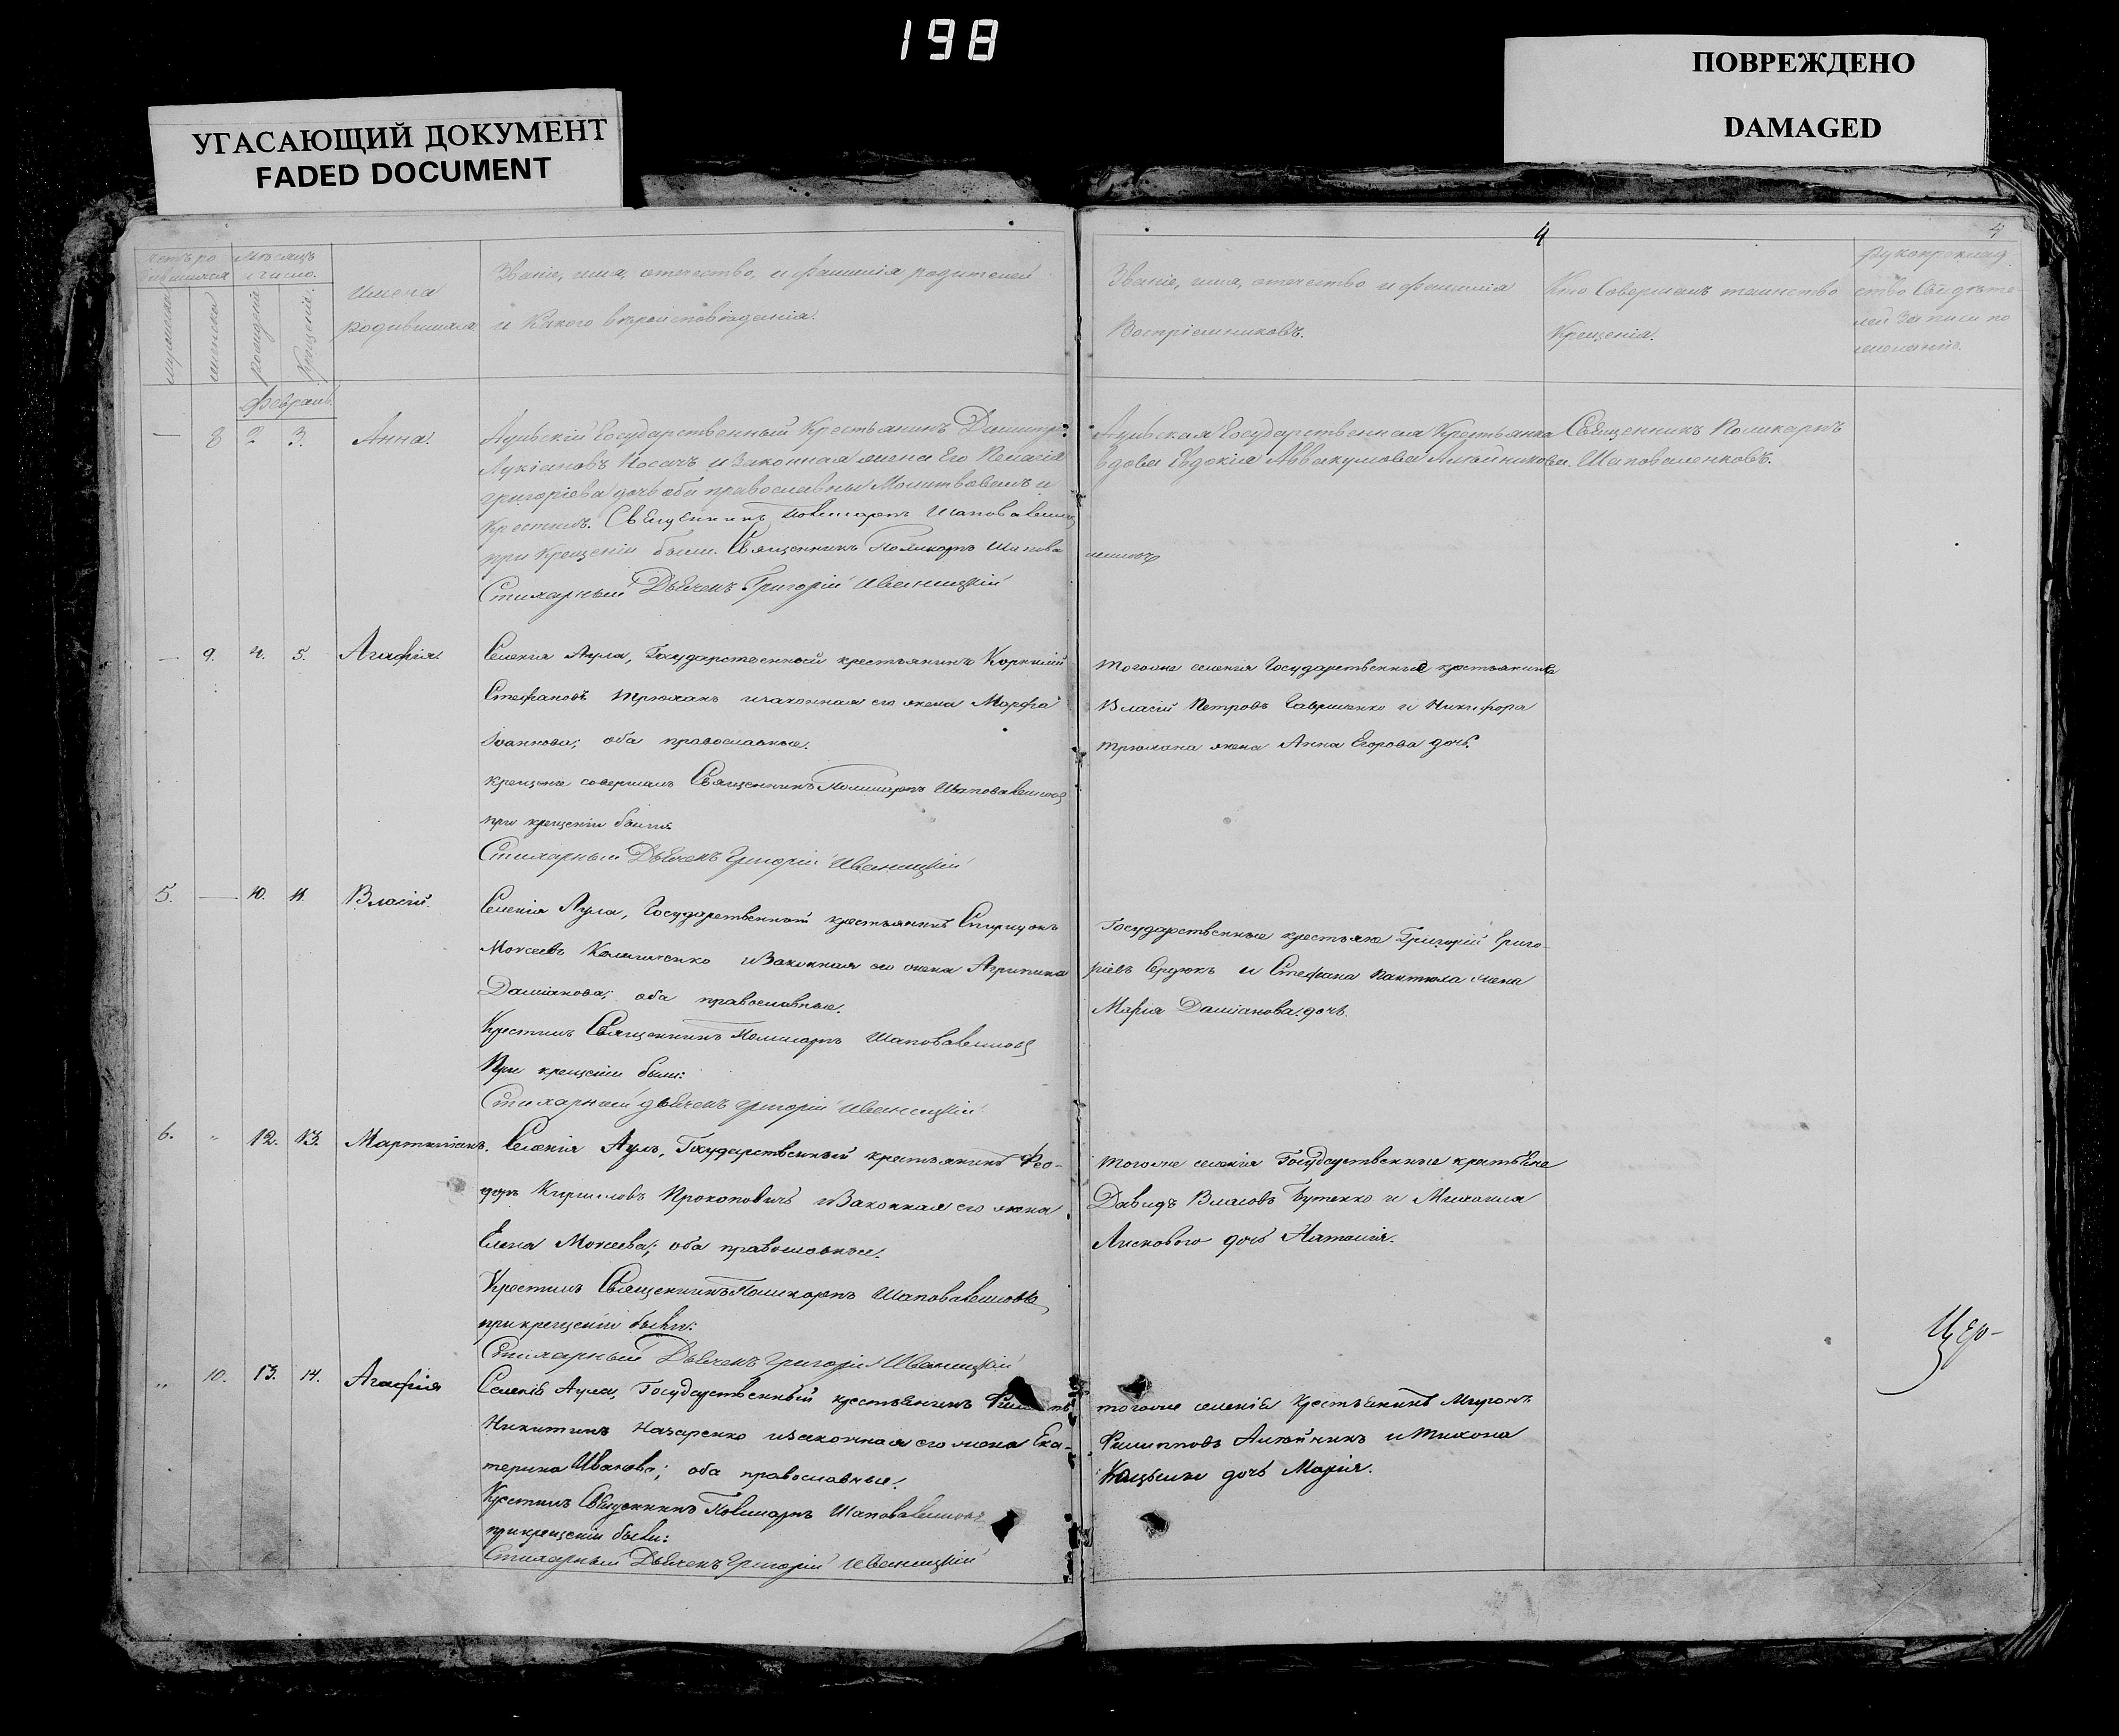 198
УГАСАЮЩИЙ ДОКУМЕНТ
FADED DOCUMENT
ПОВРЕЖДЕНО
DAMAGED
4
4
Счетъ ро
дившихся
Мѣсяцъ
и число.
мужеска
женска
рожденія
крещенія.
Имена
родившихся
Званіе, имя, отечество, и фамилія родителей
и Какого вѣроисповѣданія.
Званіе, имя, отечество и фамилія
Воспріемниковъ.
Кто Совершалъ таинство
Крещенія.
рукоприклад
ство Свидѣте-
лей записи по
желанію.
Февраль.
— 8 2 3. Анна.
Аульскій Государственный Крестьянинъ Димитрі
Лукіановъ Носачъ и Законная жена Его Пелагія
григоріева дочь оба православны Молитвовалъ и
Крестилъ. Священникъ Поликарпъ Шаповаленко
при Крещеніи были. Священникъ Поликарпъ Шапова
Стихарный Дьячекъ Григорій Иваницкій
Аульская Государственная Крестьянка
вдова Евдокія Аввакумова Алѣйникова.
Священникъ Поликарпъ
Шаповаленковъ.
— 9. 4. 5. Агафія.
Селенія Аула, Государственный крестьянинъ Корнилій
Стефановъ Трюханъ и законная его жена Марфа
Іоаннова; оба православные.
Крещеніе совершалъ Священникъ Поликарпъ Шаповаленковъ
при крещеніи были:
Стихарный Дьячекъ Григорій Иваницкій
тогоже селенія Государственные крестьянинъ
Власій Петровъ Гавриленко и Никифора
Трюхана жена Анна Егорова дочь.
5. — 10. 11. Власій.
Селенія Аула, Государственный крестьянинъ Спиридонъ
Моисеевъ и Законная его жена Агрипина
Даміанова; оба православные.
Крестилъ Священникъ Поликарпъ Шаповаленковъ
При крещеніи были:
Стихарный дьячекъ Григорій Иваницкій
Государственные крестьяне Григорій Григо-
ріевъ Сердюкъ и Стефана Пантюха жена
Марія Даміанова дочь.
6. „ 12. 13. Мартиніанъ.
Селенія Аулъ, Государственный крестьянинъ Фео-
доръ Кириловъ Прокоповичъ и Законная его жена
Елена Моисеева; оба православные.
Крестилъ Священникъ Поликарпъ Шаповаленковъ
при крещеніи были:
Стихарный Дьячекъ Григорій Иваницкій
тогоже селенія Государственные крестьяне
Давидъ Власовъ Бутенко и Михаила
Лискового дочь Наталія.
Цер-
„ 10. 13. 14. Агафія
Селенія Аула, Государственный крестьянинъ
Никитинъ Назаренко и законная его жена Ека-
терина Иванова; оба православные.
Крестилъ Священникъ Поликарпъ Шаповаленковъ
при крещеніи были:
Стихарный Дьячекъ Григорій Иваницкій
тогоже селенія Крестьянинъ Миронъ
Филипповъ Алѣйникъ и Тихона
дочь Марія.